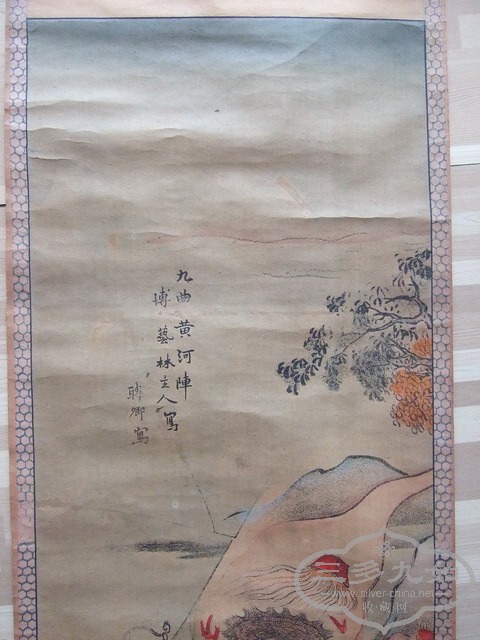 九曲黄河陣
博藝林主人寫
聘卿寫
三多九如
www.silver-china.net
收藏网